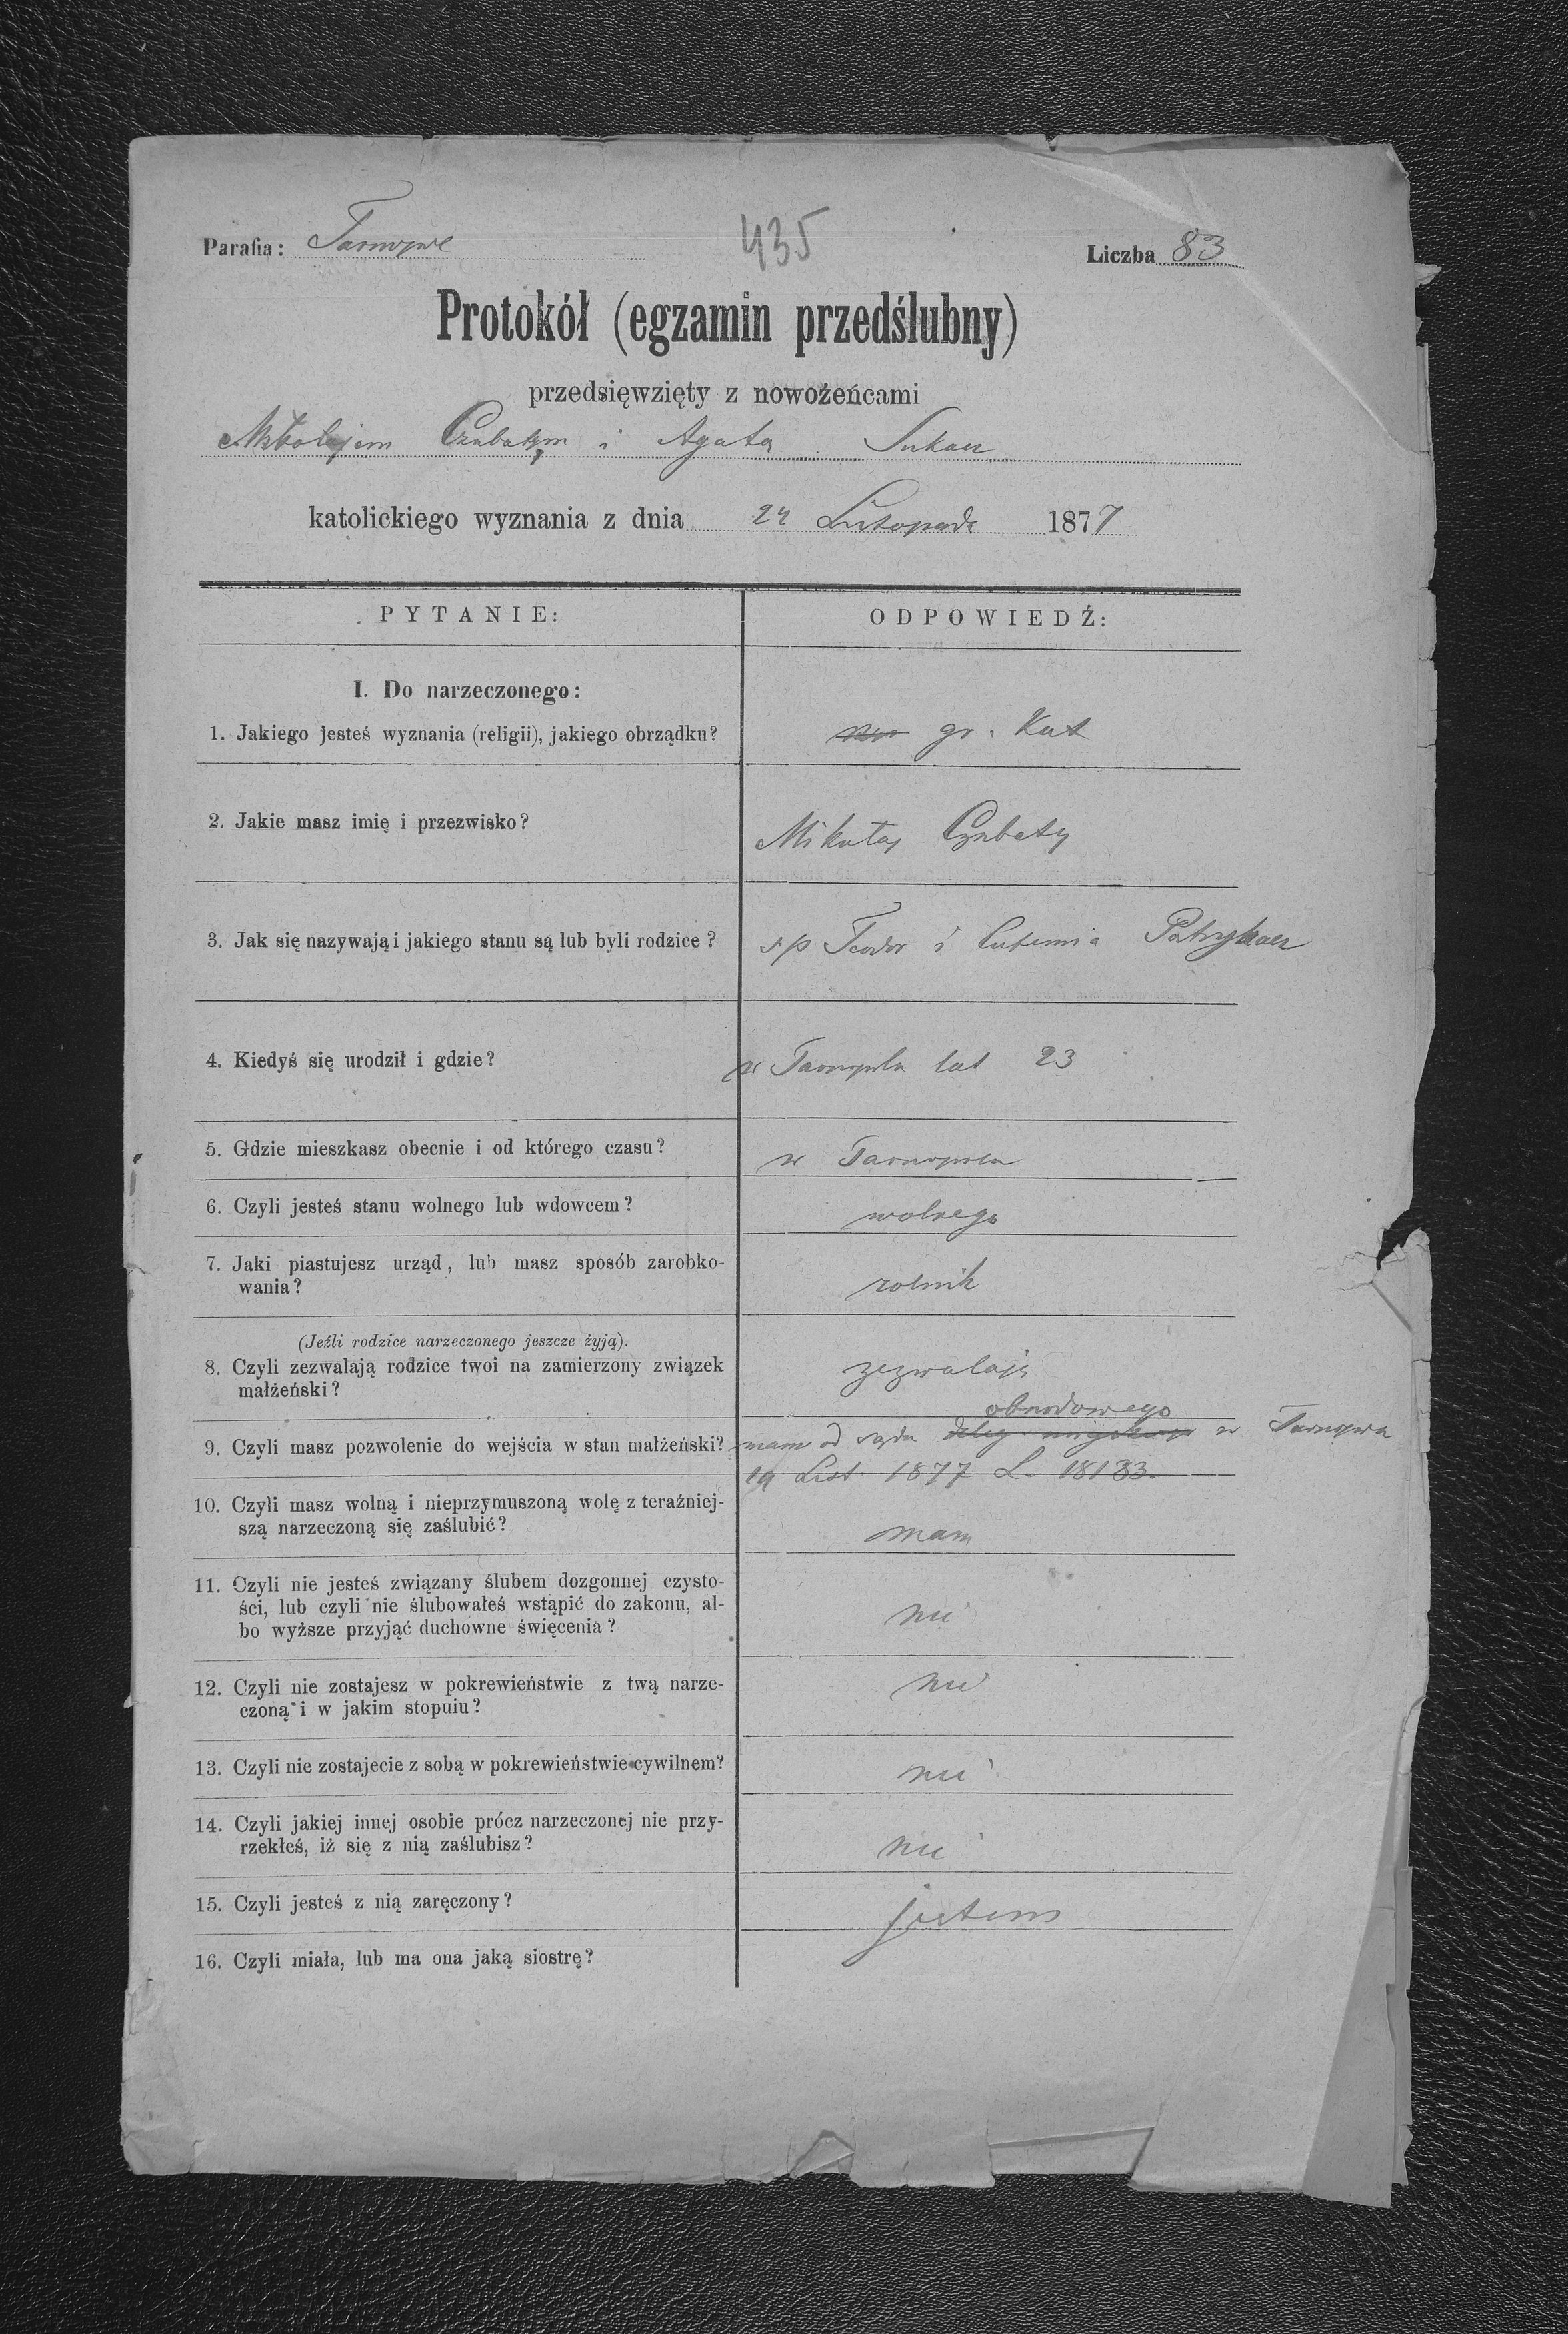 Parafia: Tarnopol
435
Liczba 83
Protokół (egzamin przedślubny)
przedsięwzięty z nowożeńcami
Mikołajem Czubatym i Agatą
katolickiego wyznania z dnia 24 Listopada 1877
PYTANIE:
ODPOWIEDŹ:
I. Do narzeczonego:
1. Jakiego jesteś wyznania (religii), jakiego obrządku?
gr. Kat
2. Jakie masz imię i przezwisko?
Mikołaj Czubaty
3. Jak się nazywają i jakiego stanu są lub byli rodzice?
ś. p Teodor i
4. Kiedyś się urodził i gdzie?
w Tarnopolu lat 23
5. Gdzie mieszkasz obecnie i od którego czasu?
w Tarnopolu
6. Czyli jesteś stanu wolnego lub wdowcem?
wolnego
7. Jaki piastujesz urząd, lub masz sposób zarobko-
wania?
rolnik
(Jeźli rodzice narzeczonego jeszcze żyją).
8. Czyli zezwalają rodzice twoi na zamierzony związek
małżeński?
zezwalają
9. Czyli masz pozwolenie do wejścia w stan małżeński?
obwodowego
mam od sądu deleg. miejskiego w
19 List. 1877 L. 18183.
10. Czyli masz wolną i nieprzymuszoną wolę z teraźniej-
szą narzeczoną się zaślubić?
mam
11. Czyli nie jesteś związany ślubem dozgonnej czysto-
ści, lub czyli nie ślubowałeś wstąpić do zakonu, al-
bo wyższe przyjąć duchowne święcenia?
nie
12. Czyli nie zostajesz w pokrewieństwie z twą narze-
czoną i w jakim stopuiu?
nie
13. Czyli nie zostajecie z sobą w pokrewieństwie cywilnem?
nie
14. Czyli jakiej innej osobie prócz narzeczonej nie przy-
rzekłeś, iż się z nią zaślubisz?
nie
15. Czyli jesteś z nią zaręczony?
jestem
16. Czyli miała, lub ma ona jaką siostrę?